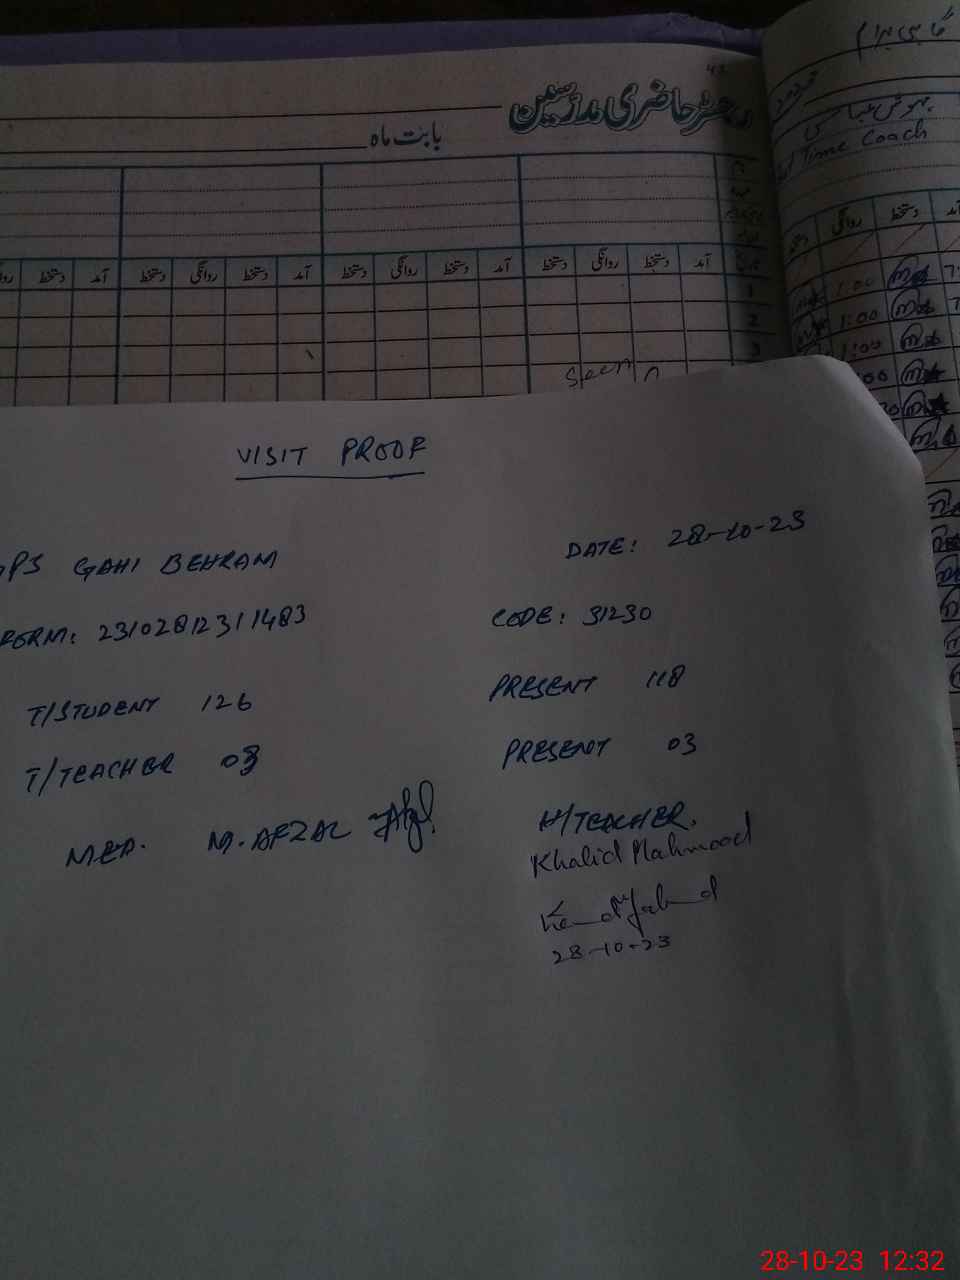 رجسٹر حاضری مدرسین
بابت ماہ
آمد دستخط روانگی دستخط آمد دستخط روانگی دستخط آمد دستخط روانگی دستخط آمد دستخط
1
2
3
Seen
Time Coach
روانگی دستخط
1:00
1:00
1:00
VISIT PROOF
GAHI BEHRAM DATE: 28-10-23
FORM: 23102812311483 CODE: 31230
T/STUDENT 126 PRESENT 118
T/TEACHER 03 PRESENT 03
MEA. M. AFZAL H/TEACHER.
Khalid Mahmood
28-10-23
28-10-23 12:32